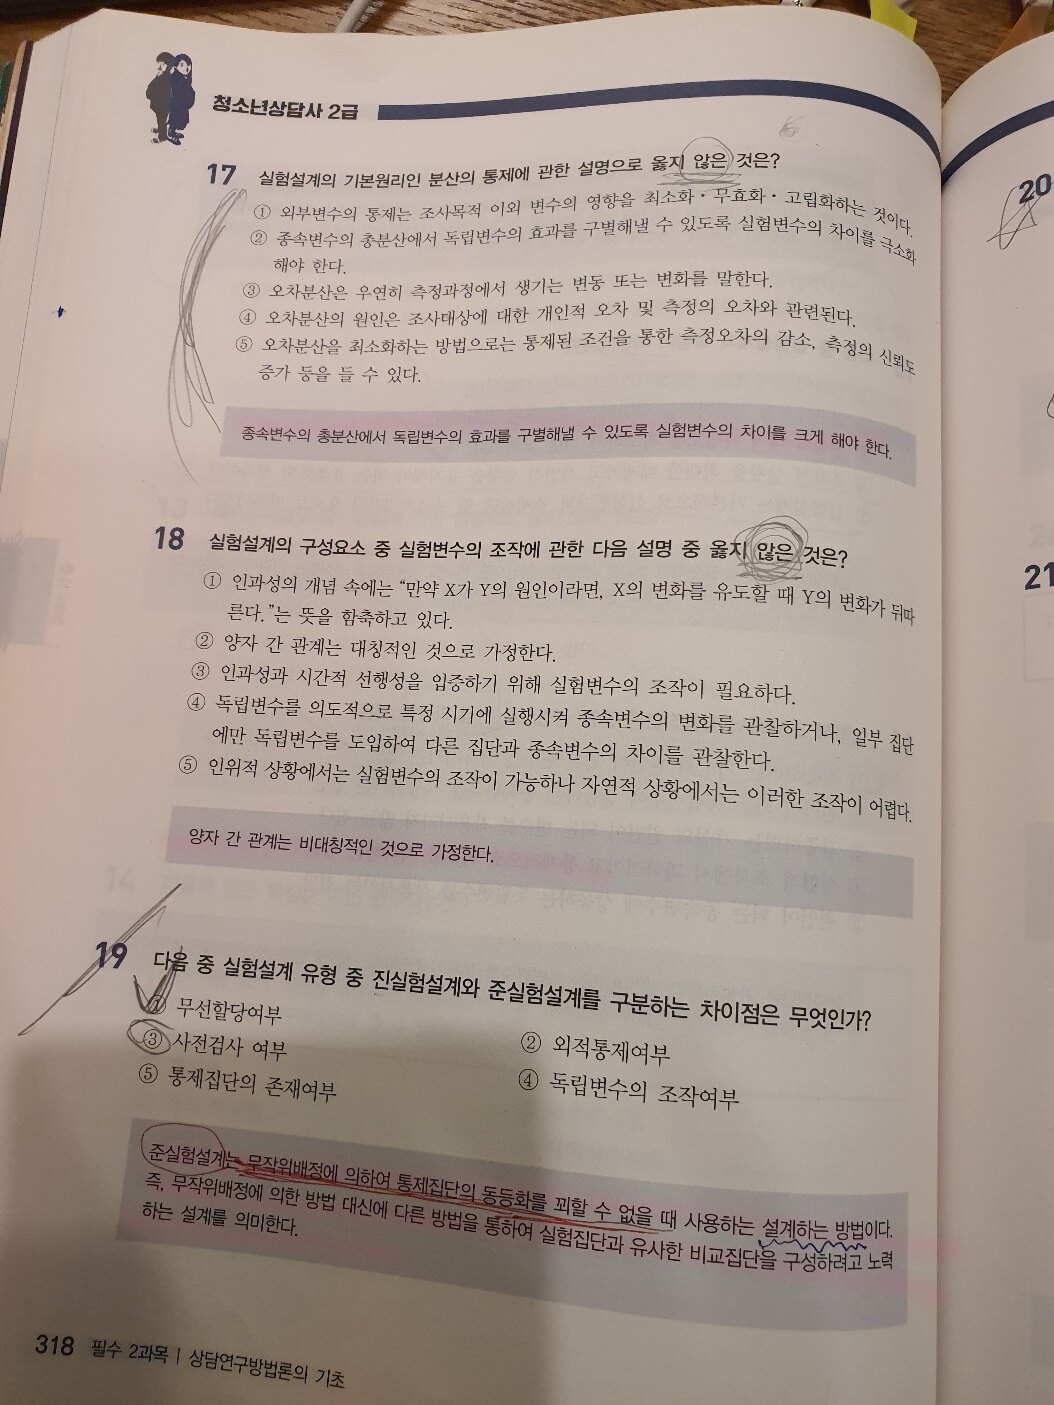 청소년상담사 2급
17 실험설계의 기본원리인 분산의 통제에 관한 설명으로 옳지 않은 것은?
① 외부변수의 통제는 조사목적 이외 변수의 영향을 최소화·무효화·고립화하는 것이다.
② 종속변수의 총분산에서 독립변수의 효과를 구별해낼 수 있도록 실험변수의 차이를 극소화
해야 한다.
③ 오차분산은 우연히 측정과정에서 생기는 변동 또는 변화를 말한다.
④ 오차분산의 원인은 조사대상에 대한 개인적 오차 및 측정의 오차와 관련된다.
⑤ 오차분산을 최소화하는 방법으로는 통제된 조건을 통한 측정오차의 감소, 측정의 신뢰도
증가 등을 들 수 있다.
종속변수의 총분산에서 독립변수의 효과를 구별해낼 수 있도록 실험변수의 차이를 크게 해야 한다.
18 실험설계의 구성요소 중 실험변수의 조작에 관한 다음 설명 중 옳지 않은 것은?
① 인과성의 개념 속에는 “만약 X가 Y의 원인이라면, X의 변화를 유도할 때 Y의 변화가 뒤따
른다.”는 뜻을 함축하고 있다.
② 양자 간 관계는 대칭적인 것으로 가정한다.
③ 인과성과 시간적 선행성을 입증하기 위해 실험변수의 조작이 필요하다.
④ 독립변수를 의도적으로 특정 시기에 실행시켜 종속변수의 변화를 관찰하거나, 일부 집단
에만 독립변수를 도입하여 다른 집단과 종속변수의 차이를 관찰한다.
⑤ 인위적 상황에서는 실험변수의 조작이 가능하나 자연적 상황에서는 이러한 조작이 어렵다.
양자 간 관계는 비대칭적인 것으로 가정한다.
19 다음 중 실험설계 유형 중 진실험설계와 준실험설계를 구분하는 차이점은 무엇인가?
① 무선할당여부
② 외적통제여부
③ 사전검사 여부
④ 독립변수의 조작여부
⑤ 통제집단의 존재여부
준실험설계는 무작위배정에 의하여 통제집단의 동등화를 꾀할 수 없을 때 사용하는 설계하는 방법이다.
즉, 무작위배정에 의한 방법 대신에 다른 방법을 통하여 실험집단과 유사한 비교집단을 구성하려고 노력
하는 설계를 의미한다.
318 필수 2과목 | 상담연구방법론의 기초
20
21